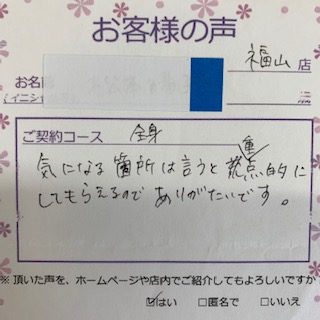 お客様の声
福山店
お名
(イニシャ
ご契約コース 全身
気になる箇所は言うと重点的に
してもらえるのでありがたいです。
※頂いた声を、ホームページや店内でご紹介してもよろしいですか
☑はい □匿名で □いいえ